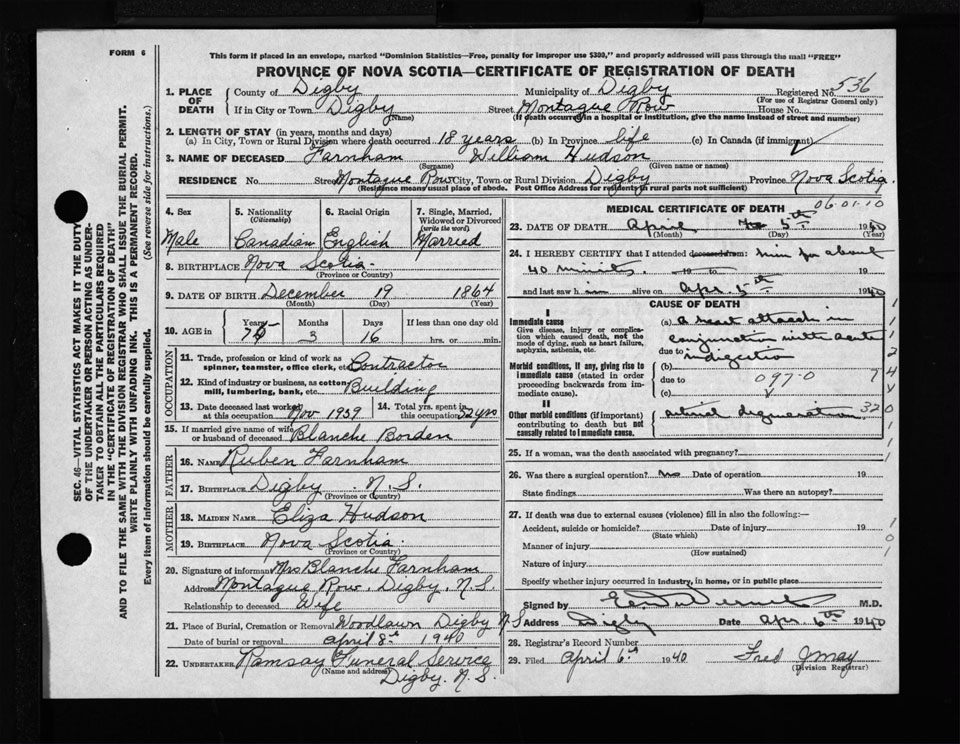 FORM 6
This form if placed in an envelope, marked "Dominion Statistics—Free, penalty for improper use $300," and properly addressed will pass through the mail "FREE"
PROVINCE OF NOVA SCOTIA—CERTIFICATE OF REGISTRATION OF DEATH
1. PLACE OF DEATH County of Digby Municipality of Digby Registered No. 536
(For use of Registrar General only)
If in City or Town Digby Street Montague Row House No.
(Name) (If death occurred in a hospital or institution, give the name instead of street and number)
2. LENGTH OF STAY (in years, months and days)
(a) In City, Town or Rural Division where death occurred 18 years (b) In Province life (c) In Canada (if immigrant)
3. NAME OF DECEASED Farnham William Hudson
(Surname) (Given name or names)
RESIDENCE No. Street Montague Row City, Town or Rural Division Digby Province Nova Scotia
(Residence means usual place of abode. Post Office Address for residents in rural parts not sufficient)
4. Sex 5. Nationality (Citizenship) 6. Racial Origin 7. Single, Married, Widowed or Divorced (write the word)
Male Canadian English Married
8. BIRTHPLACE Nova Scotia
(Province or Country)
9. DATE OF BIRTH December 19 1864
(Month) (Day) (Year)
10. AGE in Years Months Days If less than one day old
3 16 hrs. or min.
OCCUPATION
11. Trade, profession or kind of work as spinner, teamster, office clerk, etc. Contractor
12. Kind of industry or business, as cotton mill, lumbering, bank, etc. Building
13. Date deceased last worked at this occupation Nov 1939 14. Total yrs. spent in this occupation 52 yrs
15. If married give name of wife or husband of deceased Blanche Borden
FATHER
16. NAME Ruben Farnham
17. BIRTHPLACE Digby N.S.
(Province or Country)
MOTHER
18. MAIDEN NAME Eliza Hudson
19. BIRTHPLACE Nova Scotia
(Province or Country)
20. Signature of informant Mrs Blanche Farnham
Address Montague Row, Digby, N.S.
Relationship to deceased Wife
21. Place of Burial, Cremation or Removal Woodlawn Digby N S
Date of burial or removal April 8th 1940
22. UNDERTAKER Ramsay Funeral Service
(Name and address) Digby. N.S.
MEDICAL CERTIFICATE OF DEATH
06.01.10
23. DATE OF DEATH April 5th 1940
(Month) (Day) (Year)
24. I HEREBY CERTIFY that I attended deceased from: him for about
40 minits 19 to 19
and last saw h im alive on Apr. 5th 1940
CAUSE OF DEATH
I
Immediate cause
Give disease, injury or complication which caused death, not the mode of dying, such as heart failure, asphyxia, asthenia, etc.
(a) A heart attack in
conjunction with acute
due to indigestion
Morbid conditions, if any, giving rise to immediate cause (stated in order proceeding backwards from immediate cause).
(b)
due to 097-0 7
(c)
II
Other morbid conditions (if important) contributing to death but not causally related to immediate cause.
arterial degeneration 320
1 1 1 2 4 V 0 1 1
25. If a woman, was the death associated with pregnancy?
26. Was there a surgical operation? no Date of operation 19
State findings Was there an autopsy?
27. If death was due to external causes (violence) fill in also the following:—
Accident, suicide or homicide? Date of injury 19
(State which)
Manner of injury
(How sustained)
Nature of injury
Specify whether injury occurred in industry, in home, or in public place
1 0 1
Signed by M.D.
Address Digby Date Apr. 6th 1940
28. Registrar's Record Number
29. Filed April 6th 1940 Fred J May
(Division Registrar)
SEC. 46—VITAL STATISTICS ACT MAKES IT THE DUTY
OF THE UNDERTAKER OR PERSON ACTING AS UNDER-
TAKER TO OBTAIN ALL THE PARTICULARS REQUIRED
IN THE "CERTIFICATE OF REGISTRATION OF DEATH"
AND TO FILE THE SAME WITH THE DIVISION REGISTRAR WHO SHALL ISSUE THE BURIAL PERMIT.
WRITE PLAINLY WITH UNFADING INK. THIS IS A PERMANENT RECORD.
Every item of information should be carefully supplied. (See reverse side for instructions.)